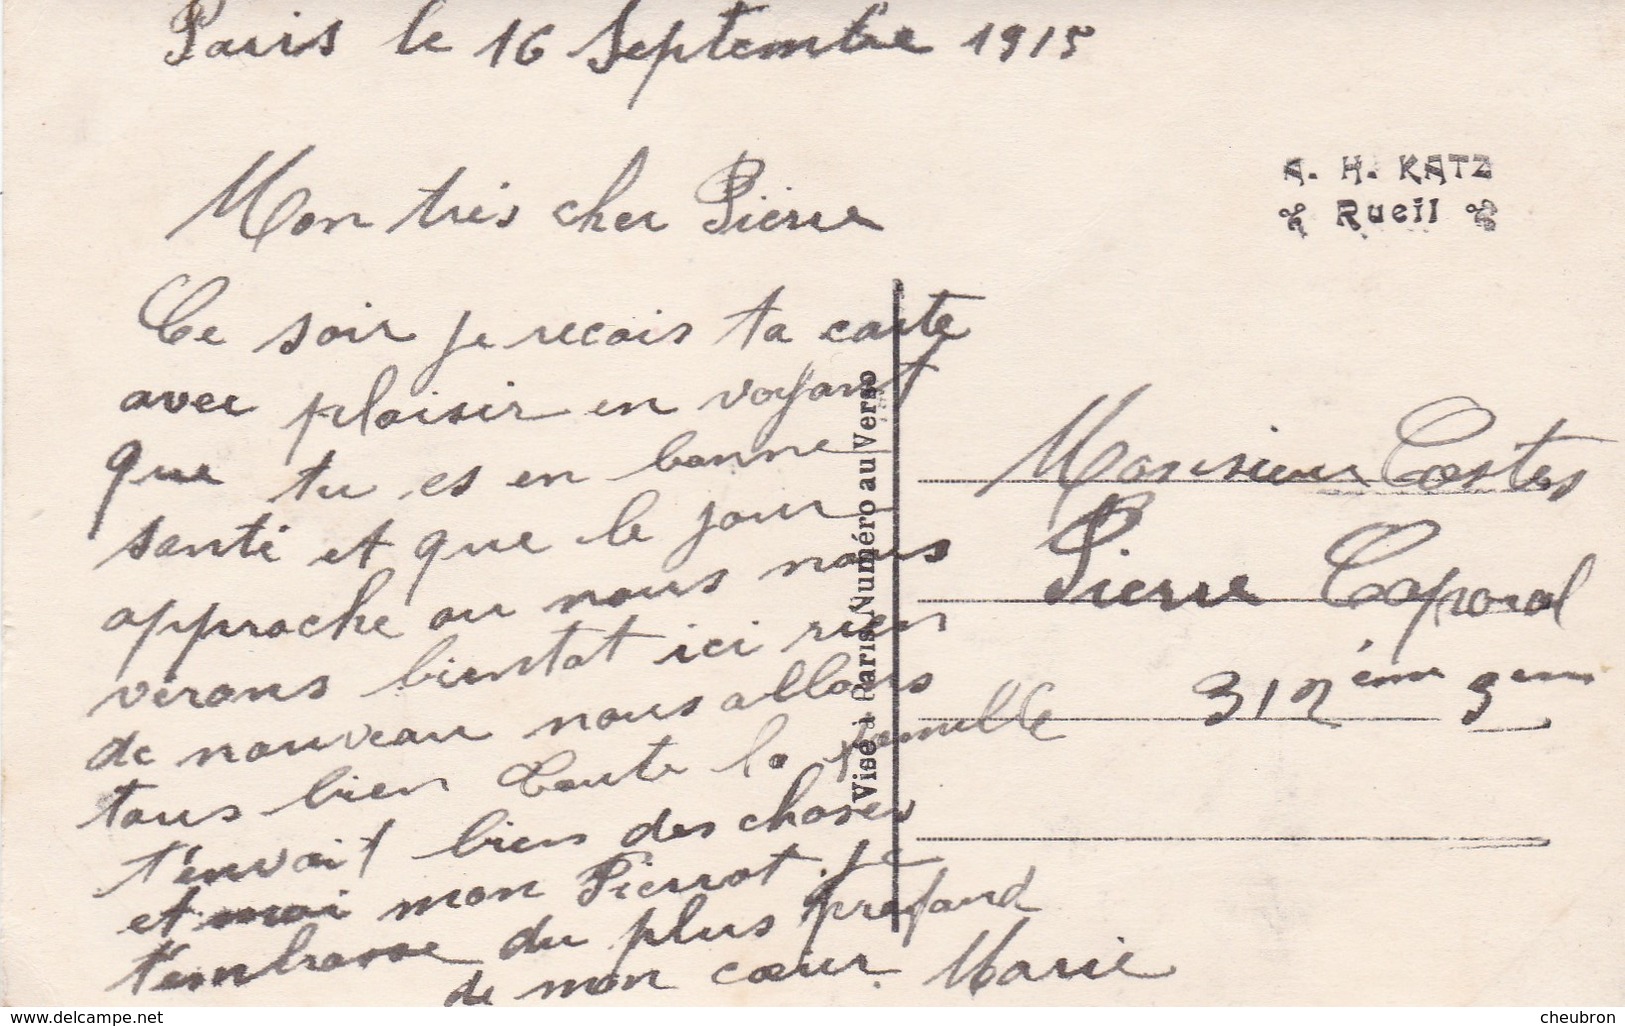 Paris le 16 Septembre 1915
A. H. KATZ
Rueil
Mon très cher Pierre
Ce soir je recois ta carte
avec plaisir en voyant
que tu es en bonne
santé et que le jour
approche ou nous nous
vérons bientot ici rien
de nouveau nous allons
tous bien toute la famille
t'envoit bien des choses
et moi mon Pierrot. Je
t'embrasse du plus profond
de mon cœur. Marie
Visé à Paris Numéro au Verso
Monsieur Costes
Pierre Caporal
312ème
www.delcampe.net
cheubron